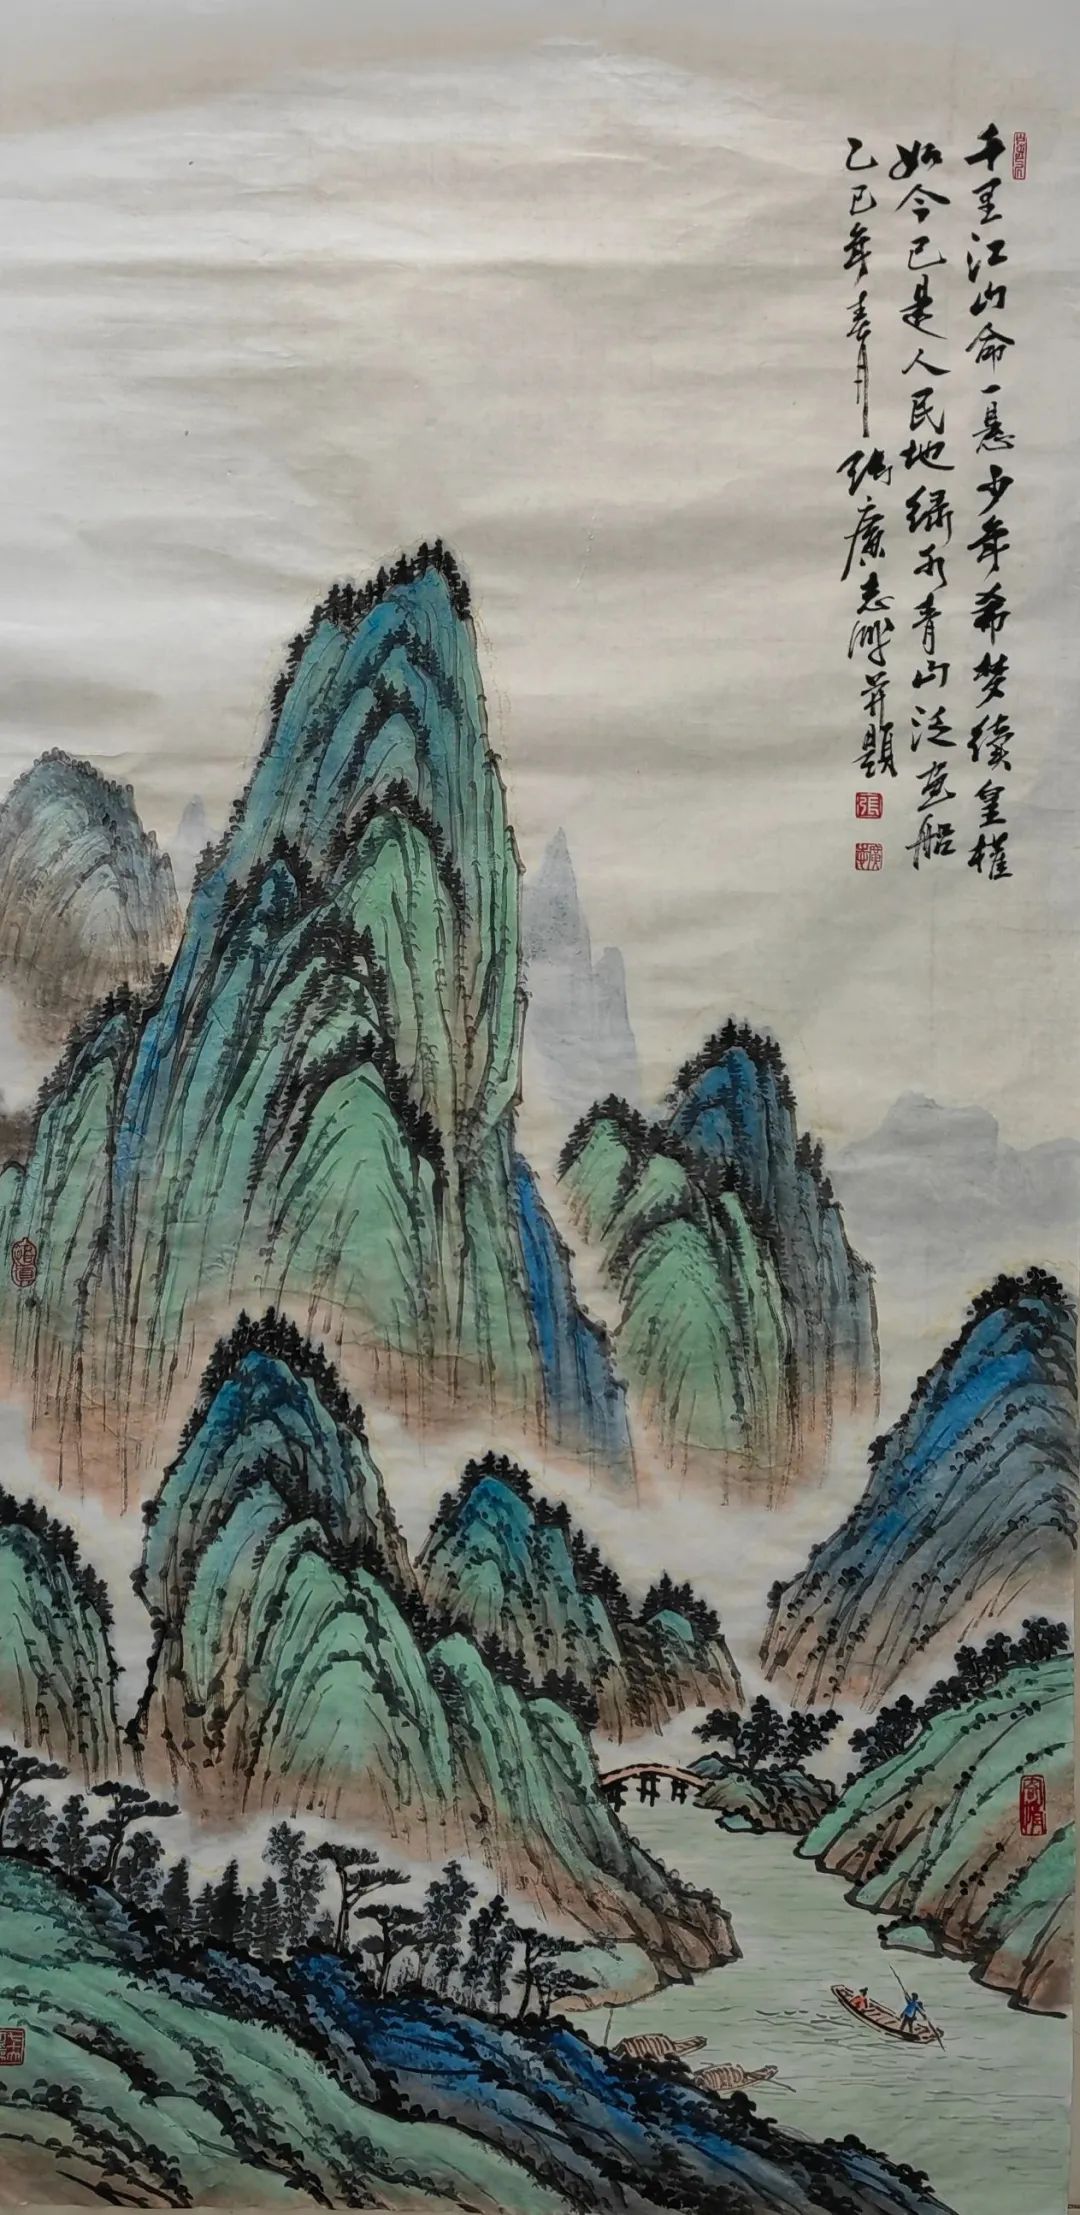 千里江山命一悬少年希梦续皇权
如今已是人民地绿水青山泛画船
乙巳年春月张广志并题
張